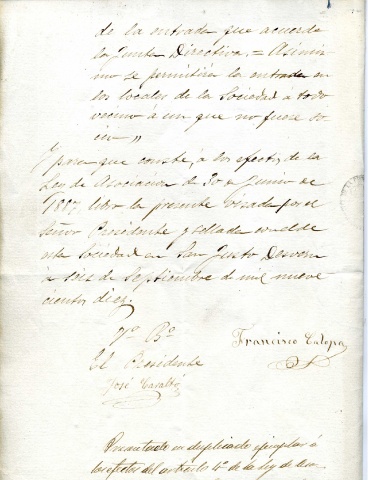 de la entrada que acuerde
la Junta Directiva. = Asimis
mo se permitirá la entrada en
los locales de la Sociedad á todo
vecino á un que no fuese so
cio."
Y para que conste, á los efectos de la
Ley de Asociacion de 30 de Junio de
1887 libro la presente visada por el
Señor Presidente y sellada con el de
esta Sociedad en San Justo Desvern
á seis de Septiembre de mil nueve
cientos diez.
Vº Bº
El Presidente
Francisco
José
Presentado en duplicado ejemplar á
los efectos del artículo 4º de la Ley de